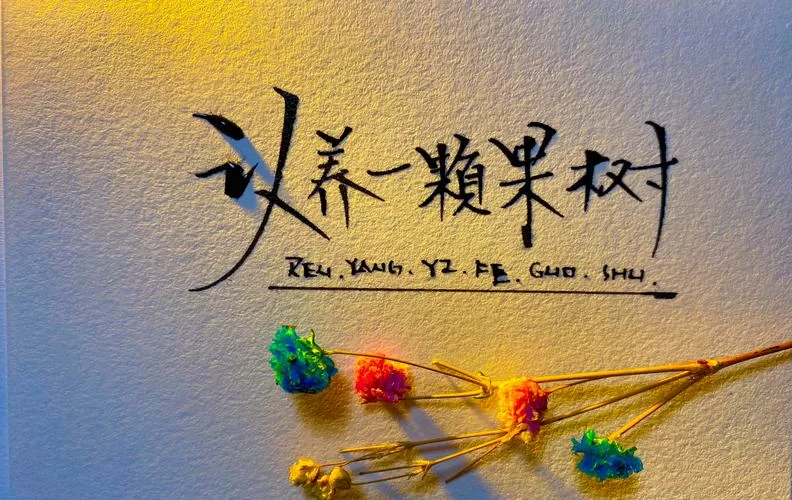 认养一顆果树
REU.YANG.YZ.FE.GUO.SHU.